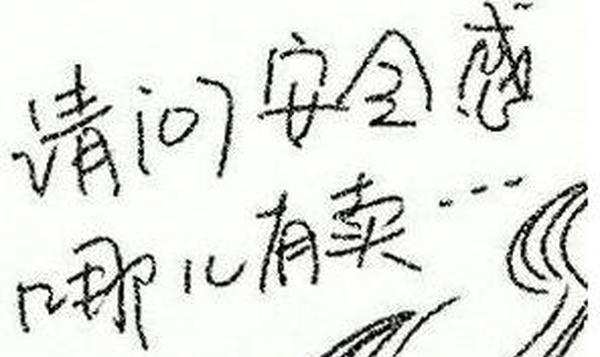 请问安全感
哪儿有卖...